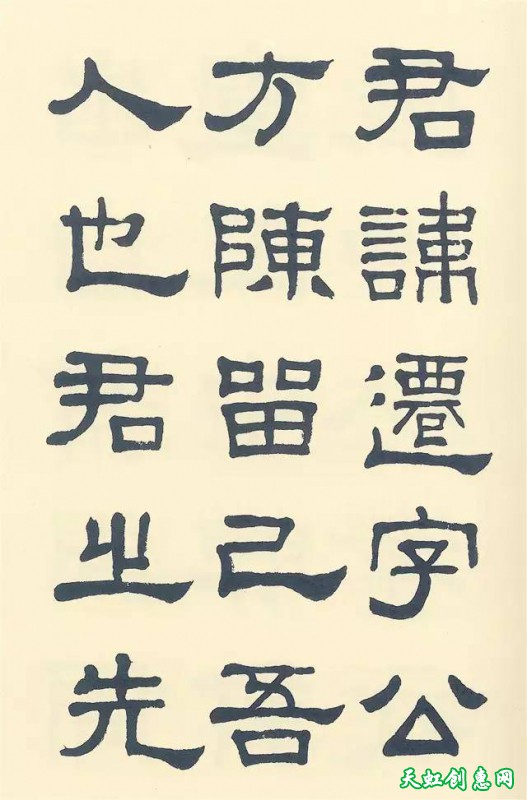 君諱遷字公
方陳留己吾
人也君之先
天虹创惠网